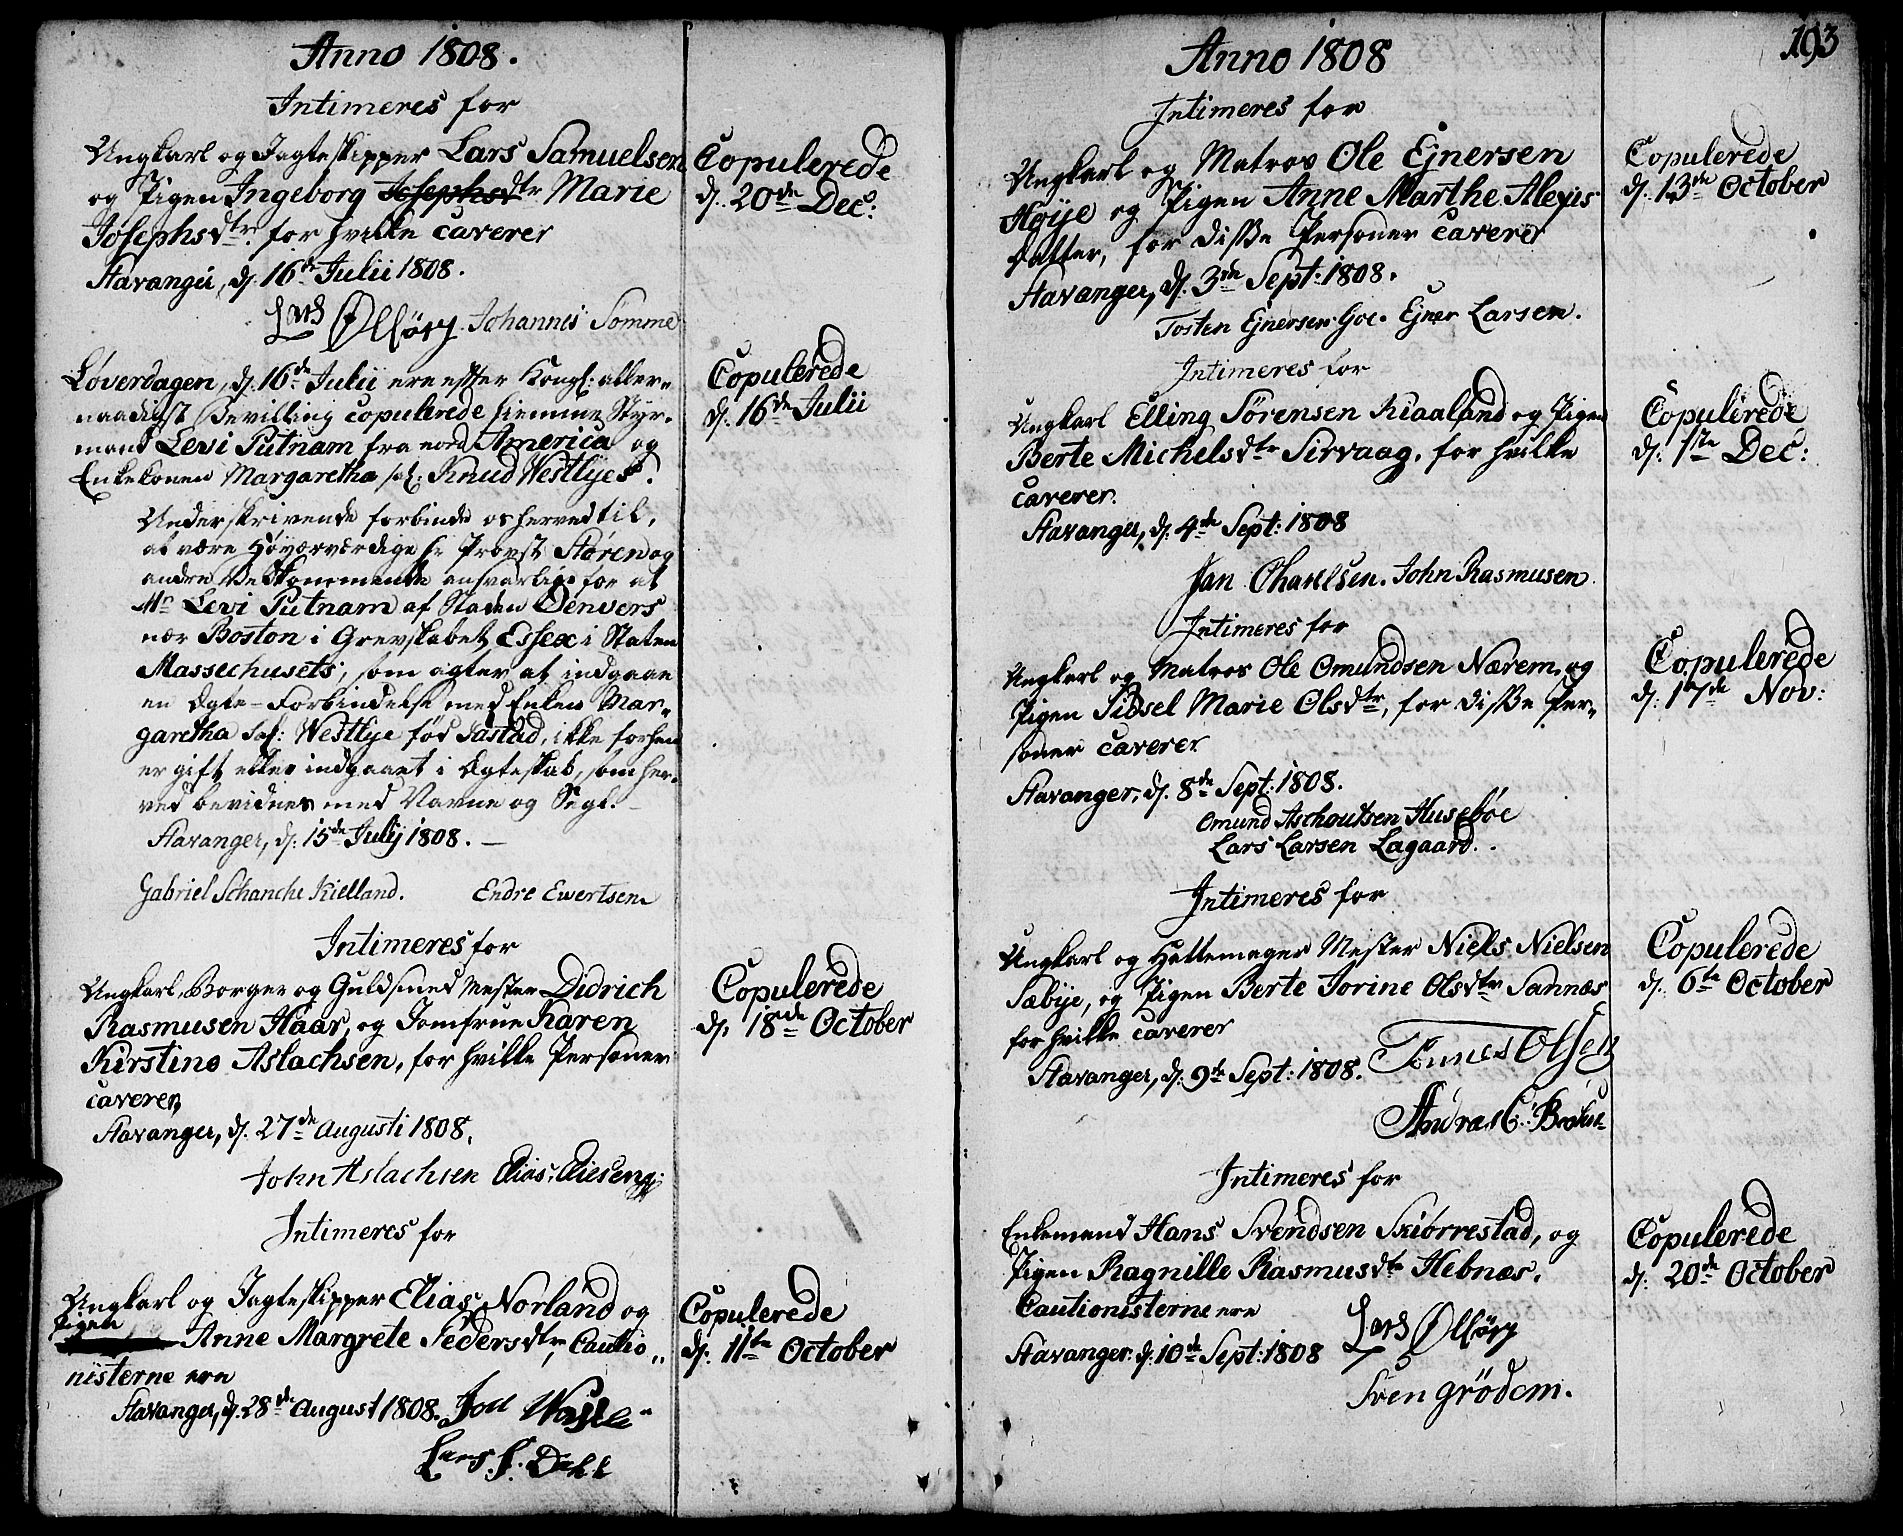 Anno 1808.
Intimeres for
Ungkarl og Jagteskipper Lars Samuelsen
og Pigen Ingeborg Josephsdtr Marie
Josephsdtr. for hvilke caverer
Stavanger, d. 16de Julii 1808.
Johannis Somme
Copulerede
d. 20de Dec:
Løverdagen, d. 16de Julii ere efter Kongl: aller-
naadigst Bevilling copulerede hiemme Styr-
mand Levi Putnam fra nord America og
Enkekonen Margaretha sal: Knud Westlyes.
Copulerede
d. 16de Julii
Underskrivende forbinde os herved til,
at være Höyærværdige Hr Provst Støren og
andre Vedkommende ansvarlige for at
Mr Levi Putnam af Staden Denvers
nær Boston i Grevskabet Essex i Staten
Massechusets, som agter at indgaae
en Ægte-Forbindelse med Enken Mar-
garetha Sal: Westlye fød Jastad, ikke forhen
er gift eller indgaaet i Ægteskab, som her-
ved bevidnes med Navne og Segl. -
Stavanger, d. 15de Julij 1808. -
Gabriel Schanche Kielland. Endre Ewertsen
Intimeres for
Ungkarl, Borger og Guldsmed Mester Didrich
Rasmusen Haar, og Jomfrue Karen
Kirstine Aslachsen, for hvilke Personer
caverer,
Stavanger, d. 27de Augusti 1808.
John Aslachsen Elias Eliesen
Copulerede
d. 18de October
Intimeres for
Ungkarl og Jagteskipper Elias Norland og
Pigen
Anne Margrete Pedersdtr, Cautio-
nisterne ere
Stavanger, d. 28de August 1808.
Lars Dahl
Copulerede
d. 11te October
193
Anno 1808
Intimeres for
Ungkarl og Matros Ole Ejnersen
Høÿe og Pigen Anne Marthe Alexis
datter, for disse Personer caverer
Stavanger, d. 3de Sept: 1808.
Tosten Ejnersen Goe. Ejner Larsen.
Copulerede
d. 13de October
Intimeres for
Ungkarl Elling Sörensen Riaaland og Pigen
Berte Michelsdtr Sirvaag, for hvilke
caverer.
Stavanger, d. 4de Sept: 1808
Jan Charlsen. John Rasmusen
Copulerede
d. 1ste Dec:
Intimeres for
Ungkarl og Matros Ole Omundsen Nærem, og
Pigen Sidsel Marie Olsdtr, for disse Per-
soner caverer
Stavanger, d. 8de Sept: 1808.
Omund Aschoutsen Husebøe
Lars Larsen Lagaard.
Copulerede
d. 17de Nov:
Intimeres for
Ungkarl og Hattemager Mester Niels Nielsen
Sæbÿe, og Pigen Berte Jorine Olsdtr Sannæs
for hvilke caverer
Stavanger, d. 9de Sept: 1808. Tønnes Olsen
Copulerede
d. 6te October
Intimeres for
Enkemand Hans Svendsen Skiörrestad, og
Pigen Ragnille Rasmusdtr Hebnæs.
Cautionisterne ere
Stavanger d. 10de Sept: 1808
Sven grödem.
Copulerede
d. 20de October